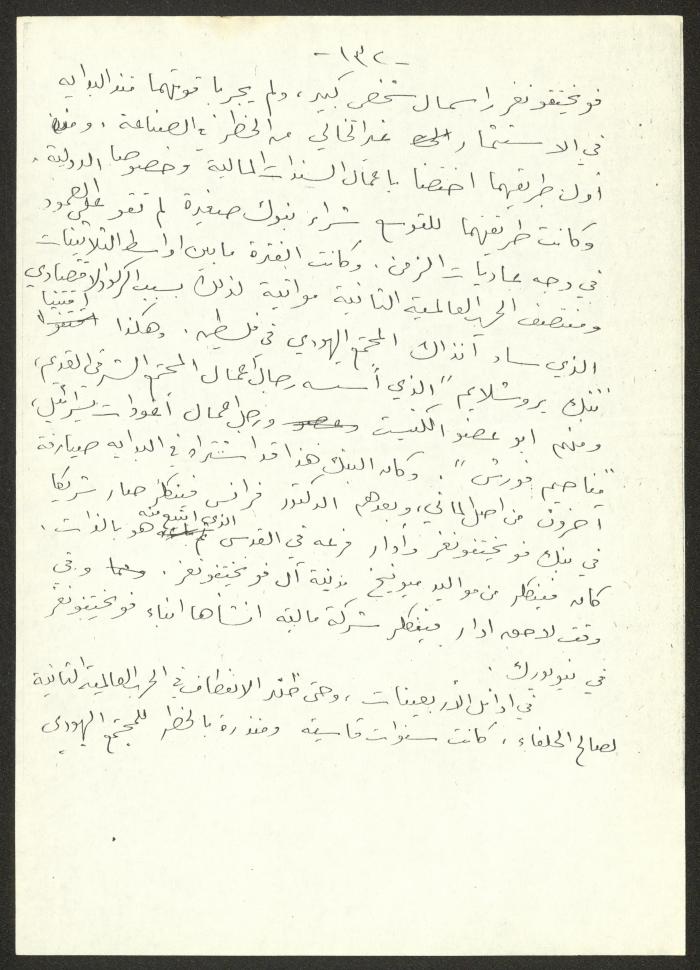 -١٣٢-
فويختفونغر راسمال شخصي كبير، ولم يجربا قوتهما منذ البدايه
في الاستثمار غير الخالي من الخطر في الصناعة، ومنذ
أول طريقهما اختصا باعمال السندات المالية وخصوصا الدولية.
وكانت طريقتهما للتوسع شراء بنوك صغيرة لم تقو على الصمود
في وجه عاديات الزمن. وكانت الفترة ما بين اواسط الثلاثينات
ومنتصف الحرب العالمية الثانية مواتية لذلك بسبب الركود الاقتصادي
الذي ساد آنذاك المجتمع اليهودي في فلسطين. وهكذا اقتنيا
"بنك يروشلايم" الذي أسسه رجال أعمال المجتمع الشرقي القديم،
ومنهم ابو عضو الكنيست ورجل اعمال أغودات يسرائيل،
"مناحيم فورش". وكان البنك هذا قد اشتراه في البدايه صيارفة
آخرون من اصل الماني، وبعدهم الدكتور فرانس فينكلر صار شريكا
في بنك فويختفونغر وأدار فرعه في القدس الذي ابتيع منه هو بالذات.
كان فينكلر من مواليد ميونيخ مدينة آل فويختفونغر. وفي
وقت لاحق ادار فينكلر شركة مالية انشأها ابناء فويختفونغر
في نيويورك.
في اوائل الأربعينات، وحتى الانعطاف في الحرب العالمية الثانية
لصالح الحلفاء، كانت سنوات قاسية ومنذرة بالخطر للمجتمع اليهودي